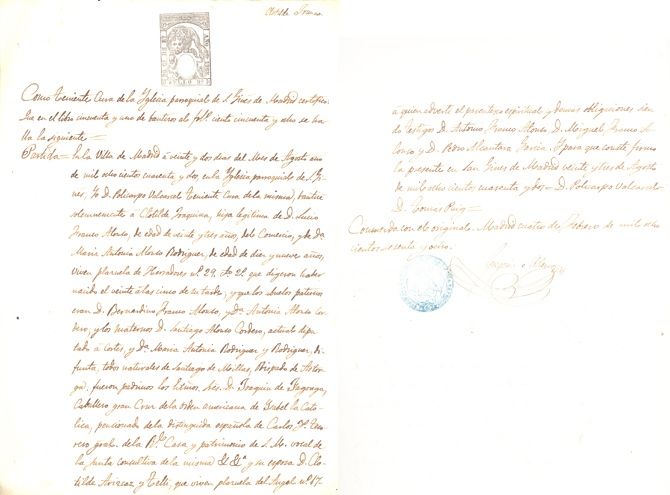 Clotilde Franco
Como Teniente Cura de la Yglesia parroquial de S. Gines de Madrid certifico:
Que en el libro cincuenta y uno de bautizos al folº ciento cincuenta y ocho se ha-
lla la siguiente=
Partida= En la Villa de Madrid á veinte y dos dias del Mes de Agosto año
de mil ochocientos cuarenta y dos, en la Yglesia parroquial de S. Gi-
nes, Yo D. Policarpo Valcarcel Teniente Cura de la misma, bautice
solemnemente a Clotilde Joaquina, hija legitima de D. Lucio
Franco Alonso, de edad de siete y tres años, del Comercio, y de Dª
Maria Antonia Alonso Rodriguez, de edad de diez y nueve años,
viven plazuela de Herradores nº 29, que digeron haber
nacido el veinte á las cinco de su tarde, y que los abuelos paternos
eran D. Bernardino Franco Alonso, y Dª Antonia Alonso Cor-
dero, y los maternos D. Santiago Alonso Cordero, actual dipu-
tado á Cortes, y Dª Maria Antonia Rodriguez y Rodriguez, di-
funta, todos naturales de Santiago de Millas, Obispado de Astor-
ga: fueron padrinos los Exmos. Sres. D. Joaquin de Fagoaga,
Caballero gran Cruz de la orden americana de Ysabel la Cató-
lica, pensionado de la distinguida española de Carlos 3º, Teso-
rero gral. de la Rl. Casa y patrimonio de S. M. vocal de
la Junta consultiva de la misma y su esposa D. Clo-
tilde y Telli, que viven plazuela del Angel nº 17.
a quien adverti el parentesco espiritual y demas obligaciones sien-
do testigos D. Antonio Franco Alonso, D. Miguel Franco A-
lonso y D. Pedro Alcantara Garcia. Y para que conste firmo
la presente en San Gines de Madrid veinte y tres de Agosto
de mil ochocientos cuarenta y dos= D. Policarpo Valcarcel=
D. Tomas Puig=
Concuerda con el original. Madrid cuatro de Febrero de mil ocho
cientos sesenta y ocho.